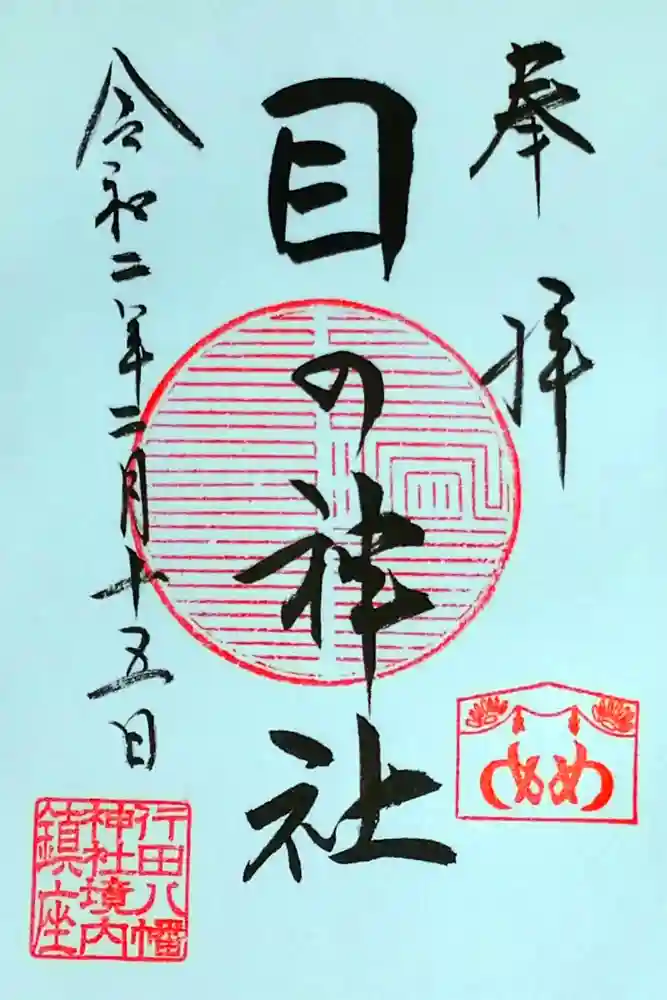 奉拝
目の神社
めめ
令和二年二月十五日
行田八幡
神社境内
鎮座